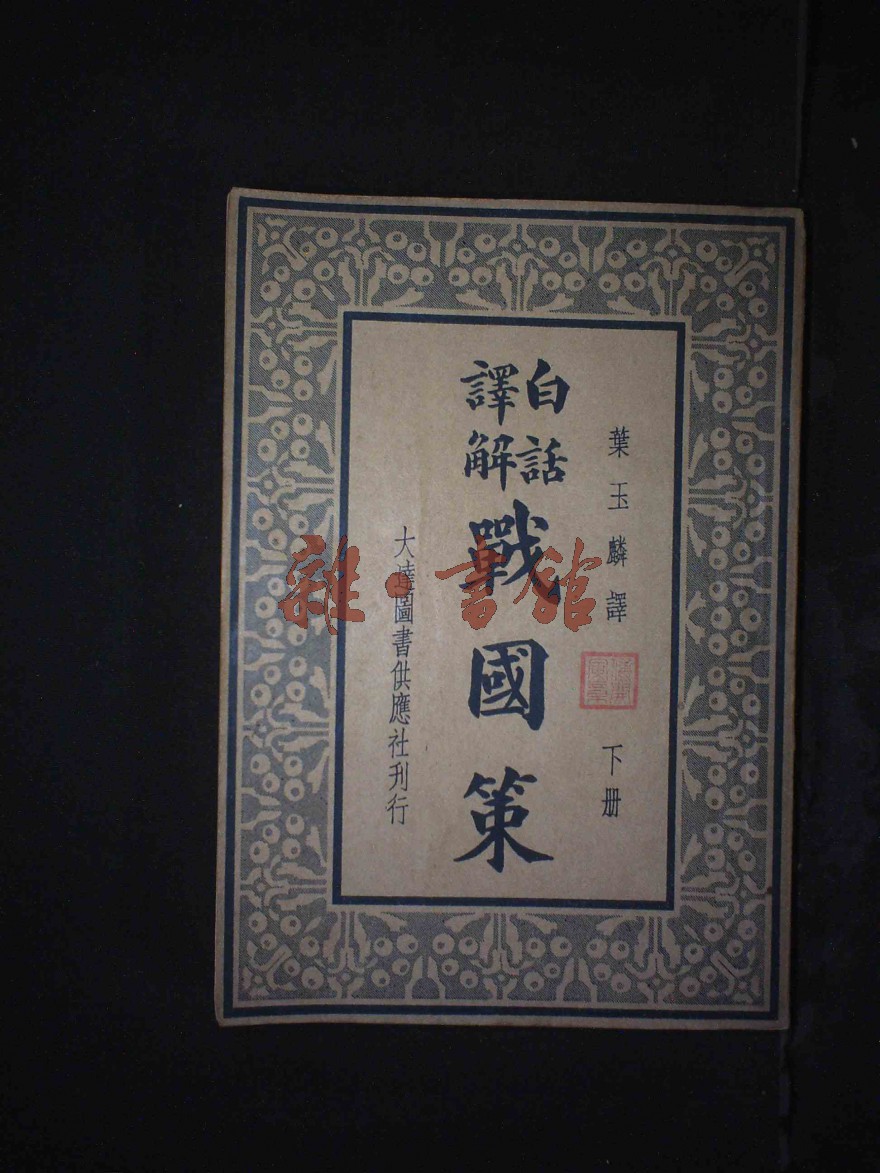 葉玉麟譯
下册
白話
譯解
戰國策
大達圖書供應社刊行
雜·書館